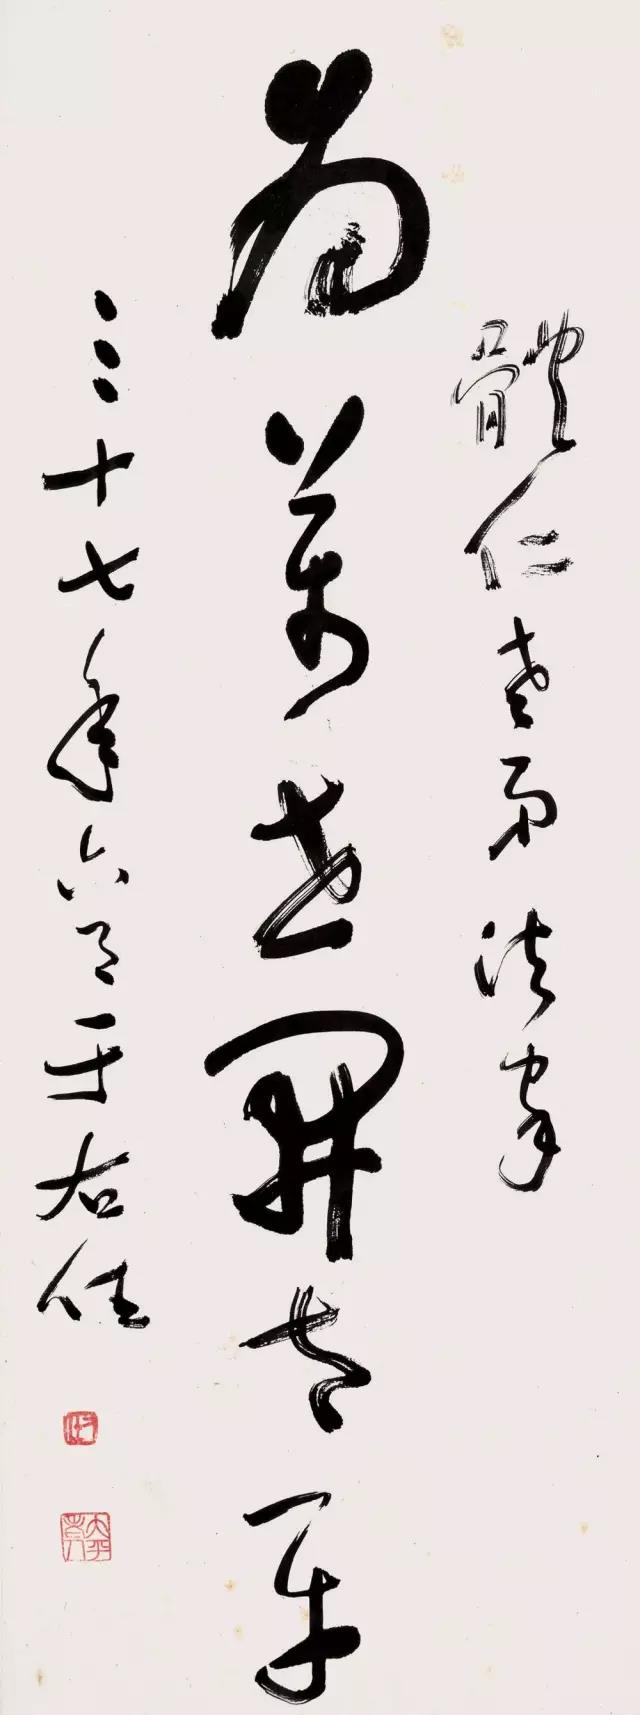 體仁老弟法家
為萬世開太平
三十七年六月于右任